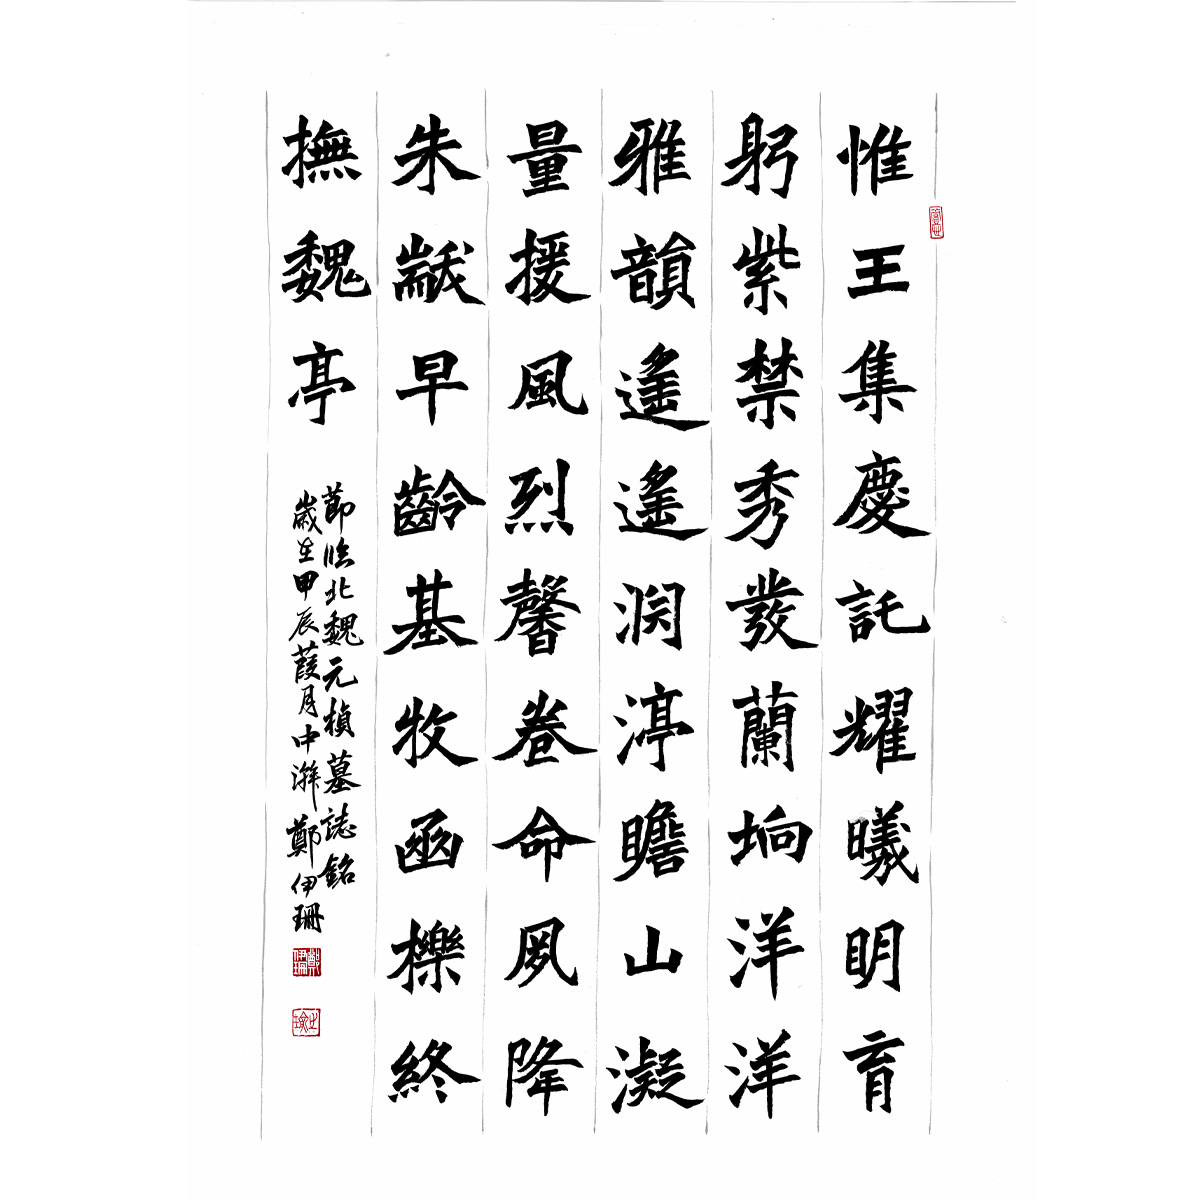 惟王集慶託耀曦眀育
躬紫禁秀發蘭坰洋洋
雅韻遙遙淵渟瞻山凝
量援風烈馨卷命夙降
朱黻早齡基牧函櫟終
撫魏亭
節臨北魏元楨墓誌銘
歲在甲辰葭月中澣鄭伊珊
鄭伊珊